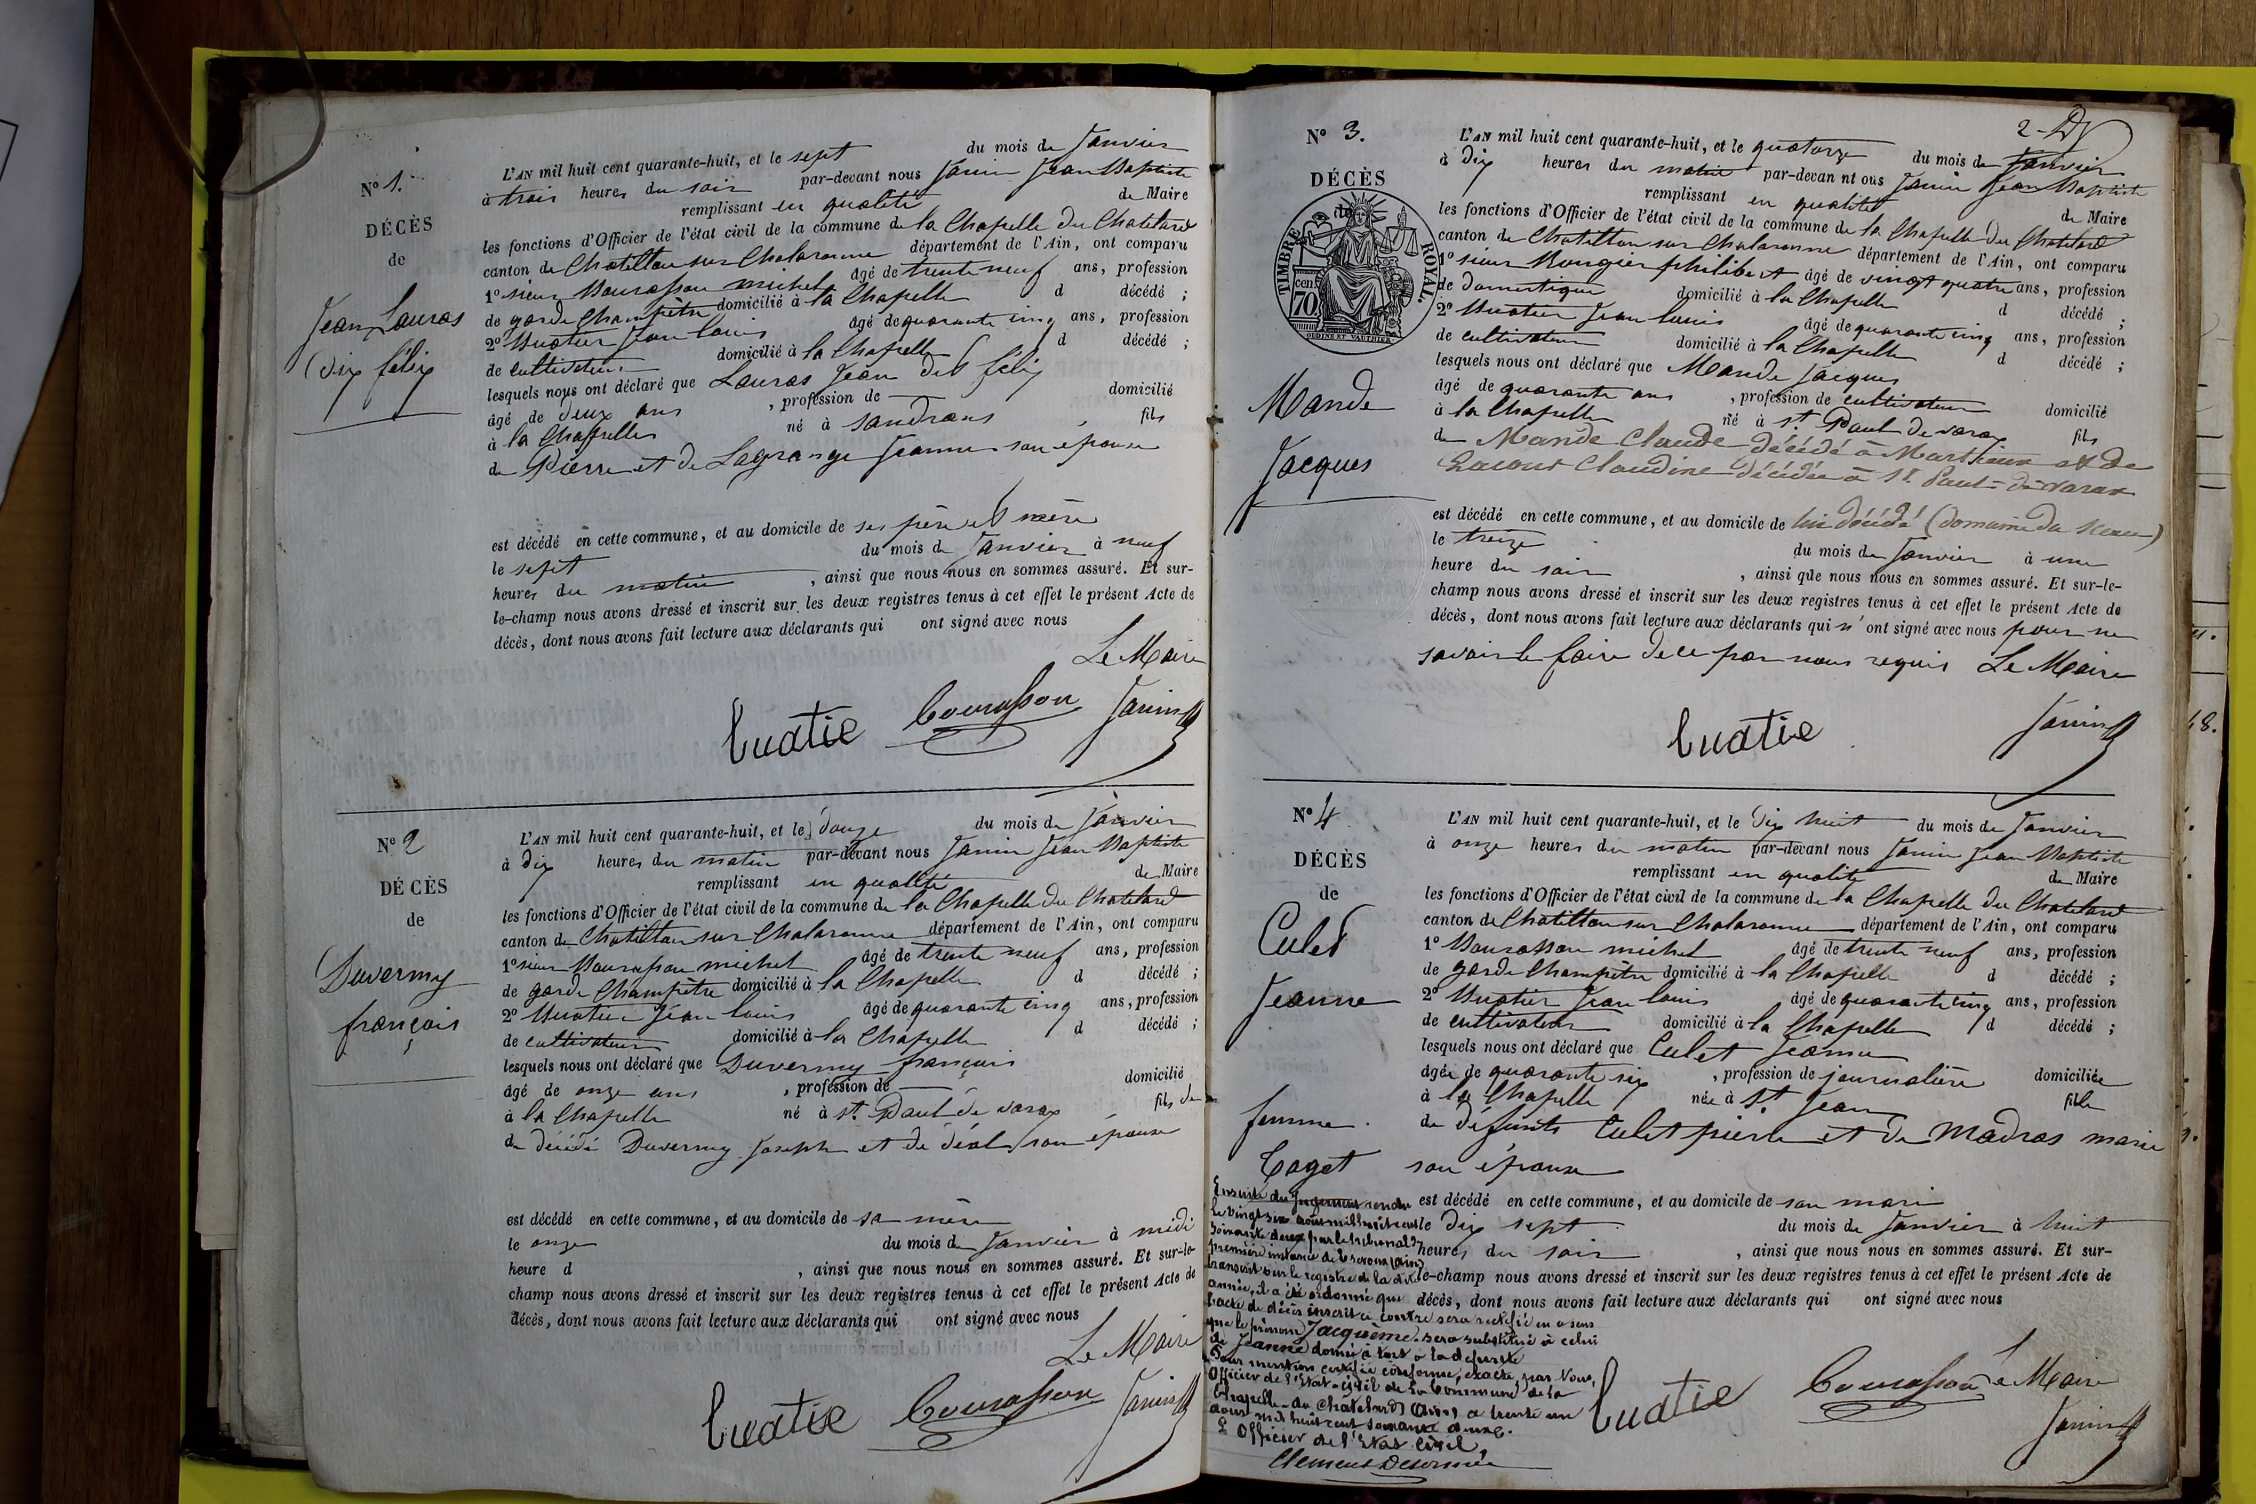 N° 1.
DÉCÈS
de
Jean Lauras
dix félix
L'AN mil huit cent quarante-huit, et le sept du mois de Janvier
à trois heures du soir par-devant nous Janin Jean Baptiste
remplissant en qualité de Maire
les fonctions d'Officier de l'état civil de la commune de la Chapelle du Chatelard
canton de Chatillon sur Chalaronne département de l'Ain, ont comparu
1° sieur Bourasson michel âgé de trente neuf ans, profession
de garde Champêtre domicilié à la Chapelle d décédé ;
2° Buatier Jean louis âgé de quarante cinq ans, profession
de cultivateur domicilié à la Chapelle d décédé ;
lesquels nous ont déclaré que Lauras Jean dit félix
âgé de deux ans , profession de domicilié
à la Chapelle né à Sandrans fils
de Pierre et de Lagrange Jeanne son épouse
est décédé en cette commune, et au domicile de ses père et mère
le sept du mois de Janvier à neuf
heures du matin , ainsi que nous nous en sommes assuré. Et sur-
le-champ nous avons dressé et inscrit sur les deux registres tenus à cet effet le présent Acte de
décès, dont nous avons fait lecture aux déclarants qui ont signé avec nous
Le Maire
buatie bourasson Janin
N° 2
DÉCÈS
de
Duvermy
françois
L'AN mil huit cent quarante-huit, et le douze du mois de Janvier
à dix heures du matin par-devant nous Janin Jean Baptiste
remplissant en qualité de Maire
les fonctions d'Officier de l'état civil de la commune de la Chapelle du Chatelard
canton de Chatillon sur Chalaronne département de l'Ain, ont comparu
1° sieur Bourasson michel âgé de trente neuf ans, profession
de garde Champêtre domicilié à la Chapelle d décédé ;
2° Buatier Jean louis âgé de quarante cinq ans, profession
de cultivateur domicilié à la Chapelle d décédé ;
lesquels nous ont déclaré que Duvermy françois
âgé de onze ans , profession de domicilié
à la Chapelle né à St. Paul de varax fils de
de décédé Duvermy Joseph et de déal son épouse
est décédé en cette commune, et au domicile de sa mère
le onze du mois de Janvier à midi
heure d , ainsi que nous nous en sommes assuré. Et sur-le-
champ nous avons dressé et inscrit sur les deux registres tenus à cet effet le présent Acte de
décès, dont nous avons fait lecture aux déclarants qui ont signé avec nous
Le Maire
buatie bourasson Janin
N° 3.
DÉCÈS
de
TIMBRE ROYAL.
70 cen
Mande
Jacques
L'AN mil huit cent quarante-huit, et le quatorze du mois de Janvier
à dix heures du matin par-devan nt ous Janin Jean Baptiste
remplissant en qualité de Maire
les fonctions d'Officier de l'état civil de la commune de la Chapelle du Chatelard
canton de Chatillon sur Chalaronne département de l'Ain, ont comparu
1° sieur Rougier philibert âgé de vingt quatre ans, profession
de domestique domicilié à la Chapelle d décédé ;
2° Buatier Jean louis âgé de quarante cinq ans, profession
de cultivateur domicilié à la Chapelle d décédé ;
lesquels nous ont déclaré que Mande Jacques
âgé de quarante ans , profession de cultivateur domicilié
à la Chapelle né à St. Paul de varax fils
de Mande Claude décédé à Marlieux et de
Lacour Claudine décédée à St. Paul-de-Varax
est décédé en cette commune, et au domicile de lui décédé (domaine du
le treize du mois de Janvier à une
heure du soir , ainsi que nous nous en sommes assuré. Et sur-le-
champ nous avons dressé et inscrit sur les deux registres tenus à cet effet le présent Acte de
décès, dont nous avons fait lecture aux déclarants qui n'ont signé avec nous pour ne
savoir le faire de ce par nous requis Le Maire
buatie Janin
N° 4
DÉCÈS
de
Culet
Jeanne
femme
Coget
L'AN mil huit cent quarante-huit, et le dix huit du mois de Janvier
à onze heures du matin par-devant nous Janin Jean Baptiste
remplissant en qualité de Maire
les fonctions d'Officier de l'état civil de la commune de la Chapelle du Chatelard
canton de Chatillon sur Chalaronne département de l'Ain, ont comparu
1° Bourasson michel âgé de trente neuf ans, profession
de garde Champêtre domicilié à la Chapelle d décédé ;
2° Buatier Jean louis âgé de quarante cinq ans, profession
de cultivateur domicilié à la Chapelle d décédé ;
lesquels nous ont déclaré que Culet Jeanne
âgée de quarante six , profession de journalière domiciliée
à la Chapelle née à St Jean fille
de défunts Culet pierre et de Madras marie
son épouse
est décédé en cette commune, et au domicile de son mari
le dix sept du mois de Janvier à huit
heures du soir , ainsi que nous nous en sommes assuré. Et sur-
le-champ nous avons dressé et inscrit sur les deux registres tenus à cet effet le présent Acte de
décès, dont nous avons fait lecture aux déclarants qui ont signé avec nous
Ensuite du Jugement rendu
le vingt six août mil huit cent
soixante deux par le tribunal de
première instance de Trévoux (Ain)
transcrit sur le registre de la dite
année, il a été ordonné que
l'acte de décès inscrit ci contre sera rectifié en ce sens
que le prénom Jacquème sera substitué à celui
de Jeanne donné à tort à la défunte
Pour mention certifiée conforme, exacte, par Nous,
Officier de l'Etat-civil de la Commune de la
Chapelle-du Chatelard (Ain) a trente un
aout mil huit cent soixante deux.
L'Officier de l'Etat civil,
Clement Desormes
buatie bourasson Le Maire
Janin